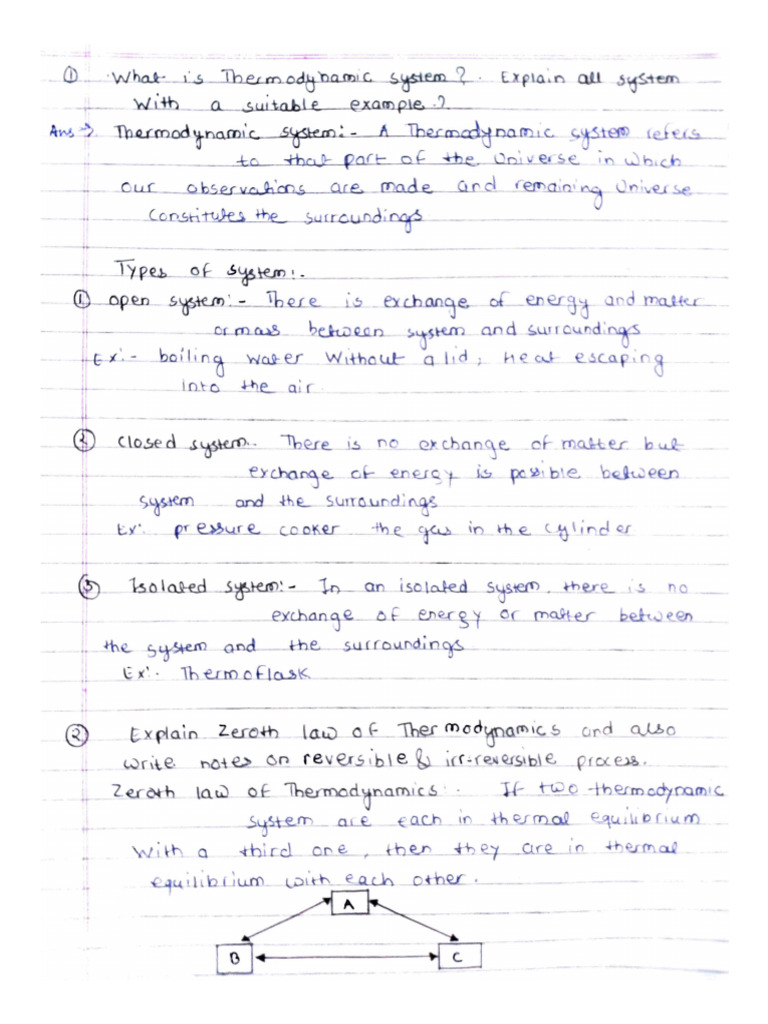 ① What is Thermodynamic system? Explain all system
With a suitable example?
Ans → Thermodynamic system:- A Thermodynamic system refers
to that part of the Universe in which
our observations are made and remaining Universe
Constitutes the surroundings
Types of system:-
① open system:- There is exchange of energy and matter
or mass between system and surroundings
Ex:- boiling water Without a lid, Heat escaping
into the air.
② Closed system.. There is no exchange of matter but
exchange of energy is possible between
system and the surroundings
Ex:. pressure cooker the gas in the cylinder
③ Isolated system:- In an isolated system, there is no
exchange of energy or matter between
the system and the surroundings
Ex:. Thermoflask
② Explain Zeroth law of Thermodynamics and also
write notes on reversible & irr-reversible process.
Zeroth law of Thermodynamics:. If two thermodynamic
system are each in thermal equilibrium
With a third one, then they are in thermal
equilibrium with each other.
A
B C